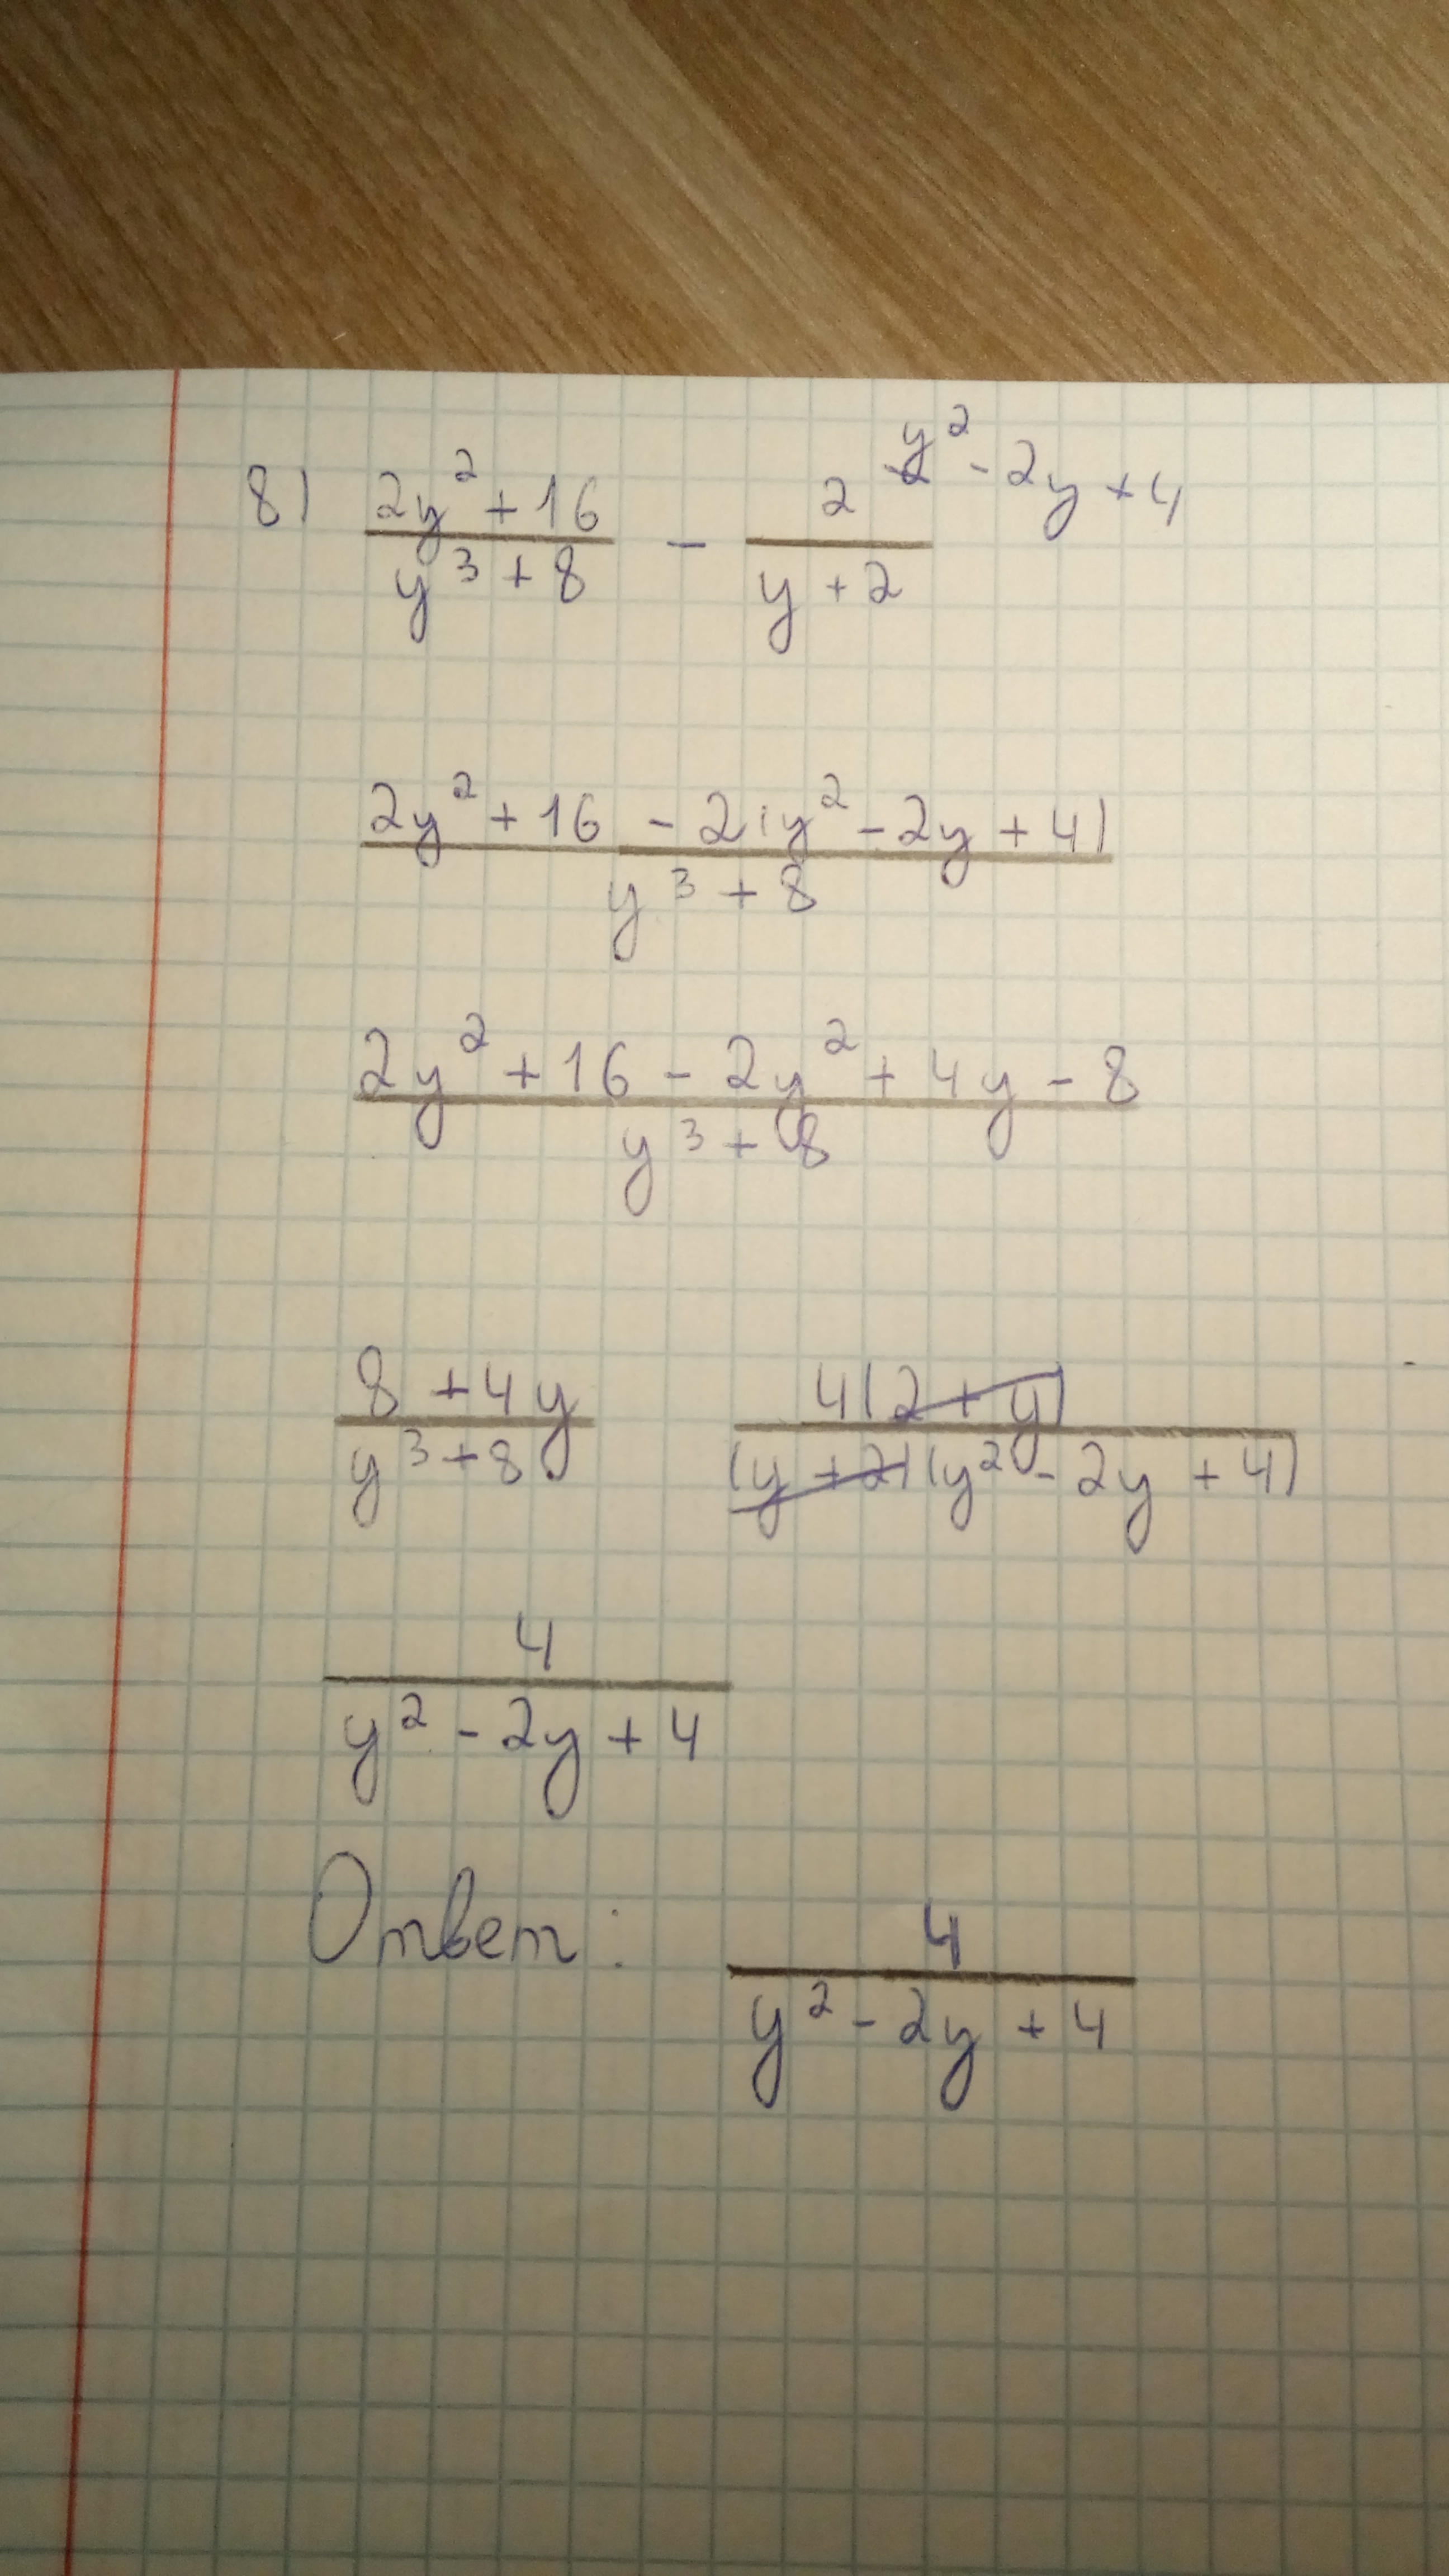 8) (2y² + 16)/(y³ + 8) - 2/(y + 2) y² - 2y + 4
(2y² + 16 - 2(y² - 2y + 4))/(y³ + 8)
(2y² + 16 - 2y² + 4y - 8)/(y³ + 8)
(8 + 4y)/(y³ + 8) 4(2 + y)/((y + 2)(y² - 2y + 4))
4/(y² - 2y + 4)
Ответ: 4/(y² - 2y + 4)